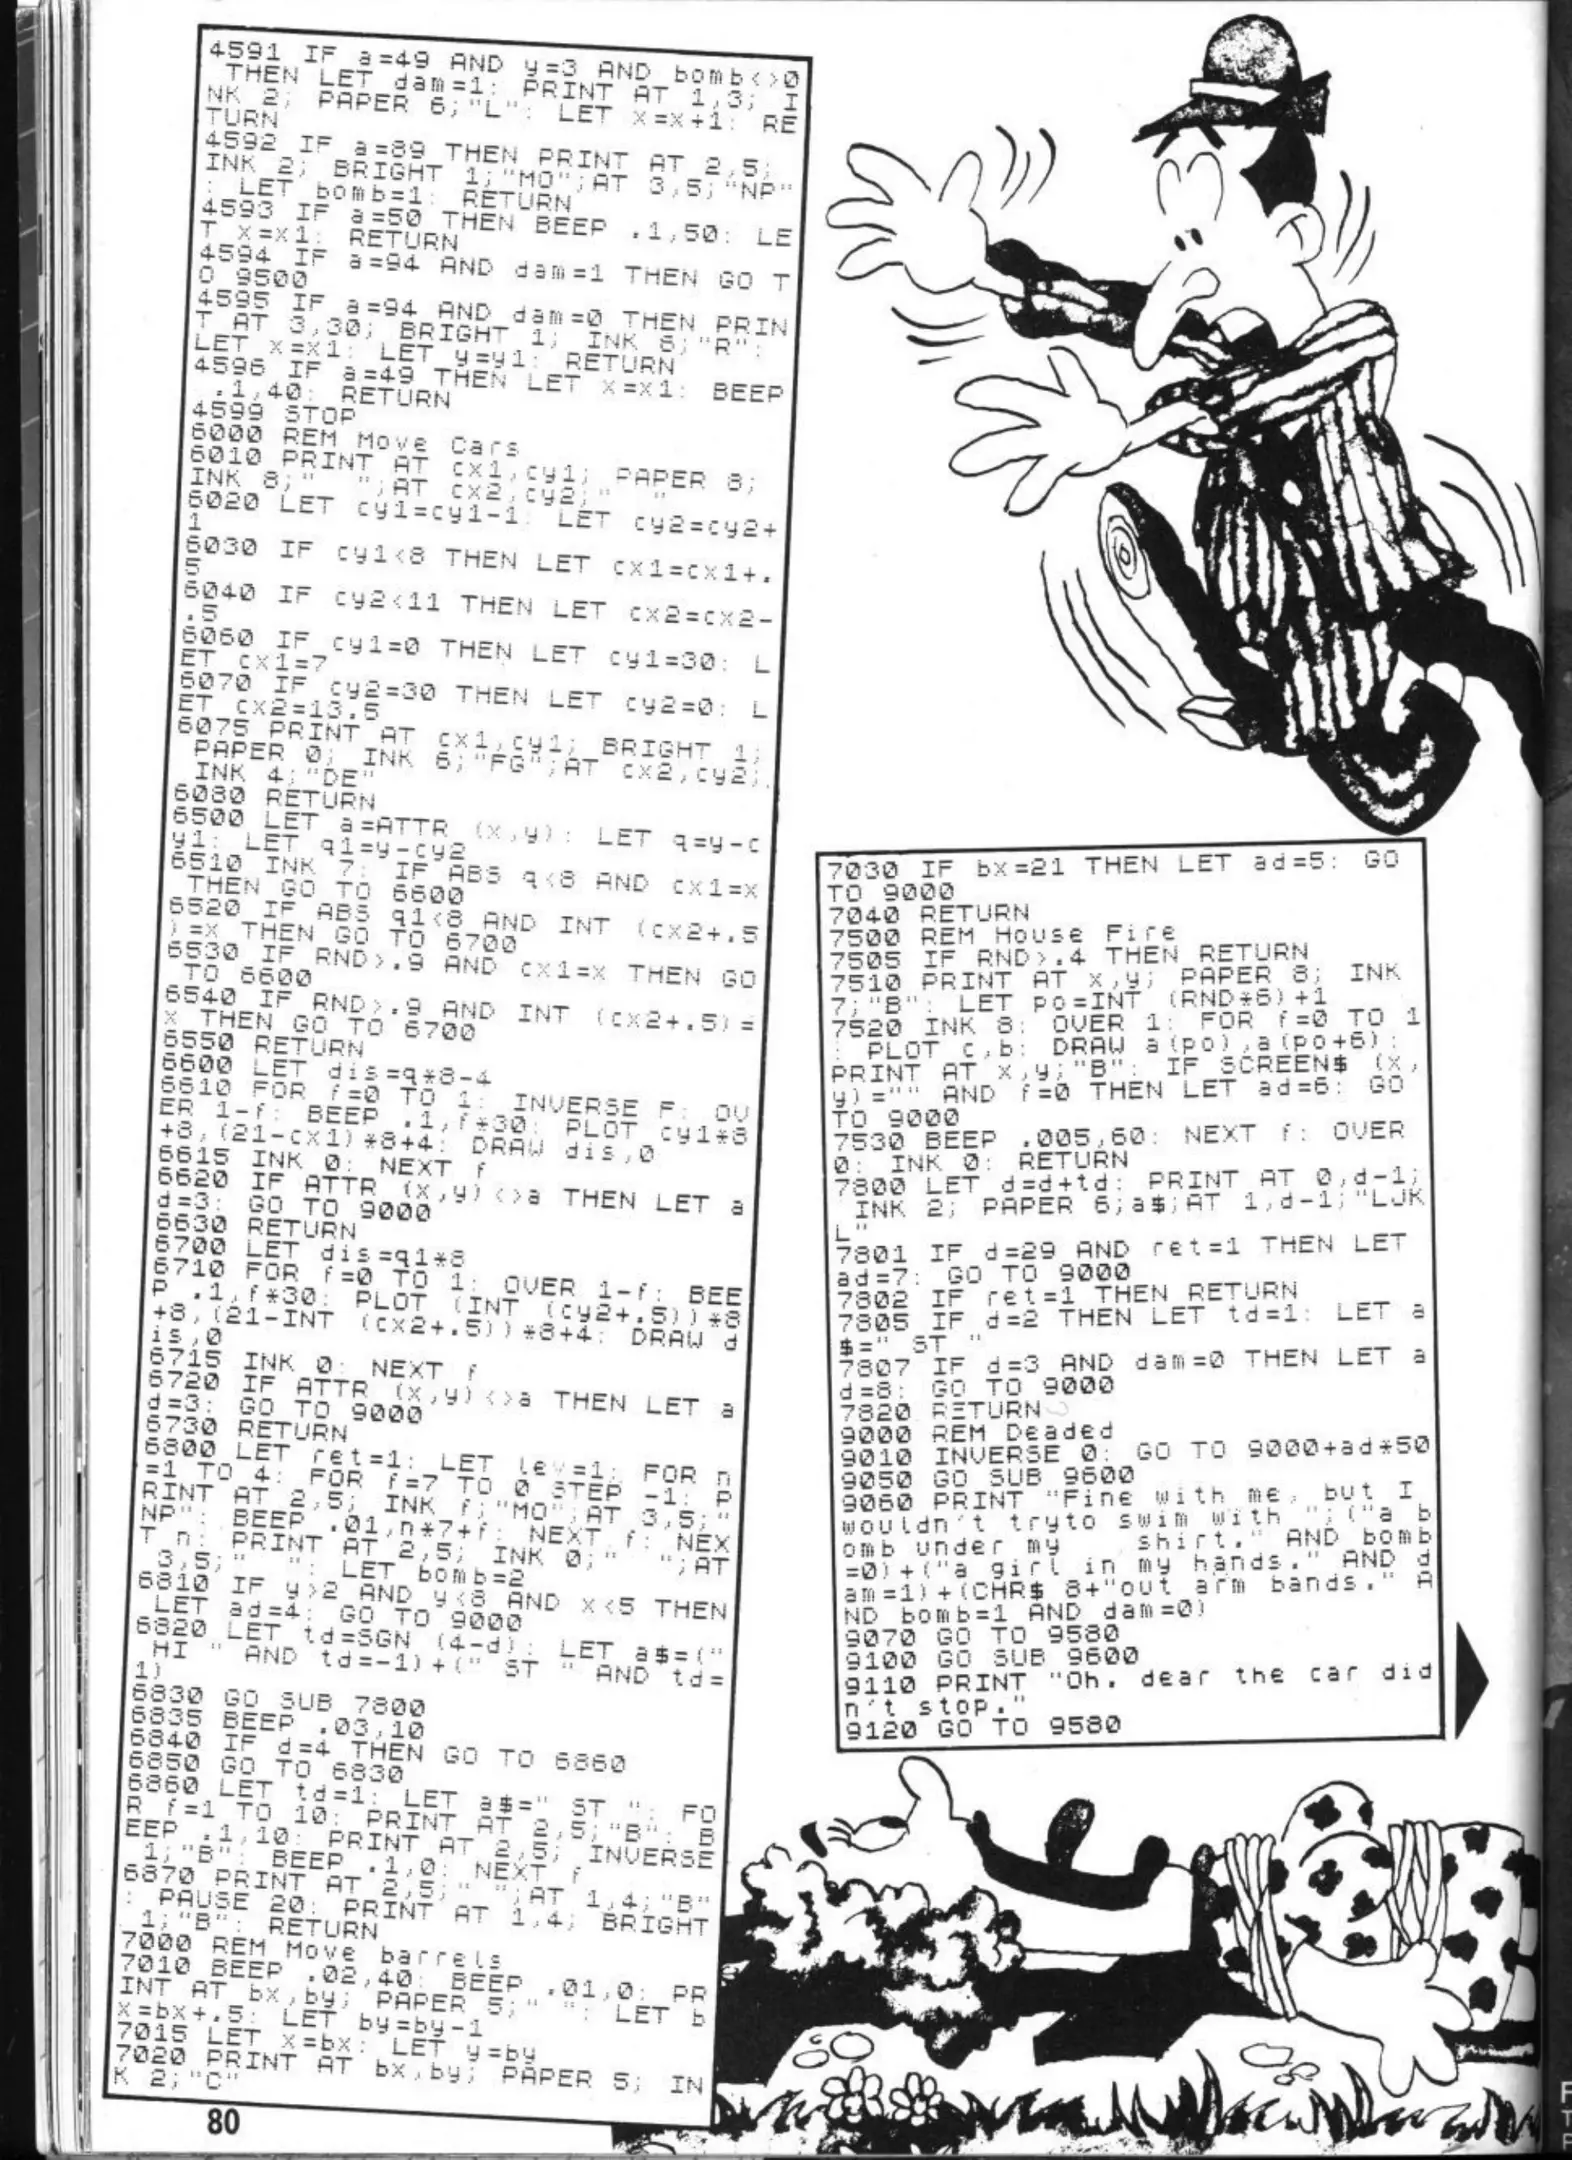 4591 IF a=49 AND y=3 AND bomb<>0
 THEN LET dam=1: PRINT AT 1,3; I
NK 2; PAPER 6;"L": LET x=x+1: RE
TURN
4592 IF a=89 THEN PRINT AT 2,5;
INK 2; BRIGHT 1;"MO";AT 3,5;"NP"
: LET bomb=1: RETURN
4593 IF a=50 THEN BEEP .1,50: LE
T x=x1: RETURN
4594 IF a=94 AND dam=1 THEN GO T
O 9500
4595 IF a=94 AND dam=0 THEN PRIN
T AT 3,30; BRIGHT 1; INK 6;"R":
LET x=x1: LET y=y1: RETURN
4596 IF a=49 THEN LET x=x1: BEEP
 .1,40: RETURN
4599 STOP
6000 REM Move Cars
6010 PRINT AT cx1,cy1; PAPER 8;
INK 8;"  ";AT cx2,cy2;"  "
6020 LET cy1=cy1-1: LET cy2=cy2+
1
6030 IF cy1<8 THEN LET cx1=cx1+.
5
6040 IF cy2<11 THEN LET cx2=cx2-
.5
6060 IF cy1=0 THEN LET cy1=30: L
ET cx1=7
6070 IF cy2=30 THEN LET cy2=0: L
ET cx2=13.5
6075 PRINT AT cx1,cy1; BRIGHT 1;
 PAPER 0; INK 6;"FG";AT cx2,cy2;
 INK 4;"DE"
6080 RETURN
6500 LET a=ATTR (x,y): LET q=y-c
y1: LET q1=y-cy2
6510 INK 7: IF ABS q<8 AND cx1=x
 THEN GO TO 6600
6520 IF ABS q1<8 AND INT (cx2+.5
)=x THEN GO TO 6700
6530 IF RND>.9 AND cx1=x THEN GO
 TO 6600
6540 IF RND>.9 AND INT (cx2+.5)=
x THEN GO TO 6700
6550 RETURN
6600 LET dis=q*8-4
6610 FOR f=0 TO 1: INVERSE F: OV
ER 1-f: BEEP .1,f*30: PLOT cy1*8
+8,(21-cx1)*8+4: DRAW dis,0
6615 INK 0: NEXT f
6620 IF ATTR (x,y)<>a THEN LET a
d=3: GO TO 9000
6630 RETURN
6700 LET dis=q1*8
6710 FOR f=0 TO 1: OVER 1-f: BEE
P .1,f*30: PLOT (INT (cy2+.5))*8
+8,(21-INT (cx2+.5))*8+4: DRAW d
is,0
6715 INK 0: NEXT f
6720 IF ATTR (x,y)<>a THEN LET a
d=3: GO TO 9000
6730 RETURN
6800 LET ret=1: LET lev=1: FOR n
=1 TO 4: FOR f=7 TO 0 STEP -1: P
RINT AT 2,5; INK f;"MO";AT 3,5;"
NP": BEEP .01,n*7+f: NEXT f: NEX
T n: PRINT AT 2,5; INK 0;"  ";AT
 3,5;"  ": LET bomb=2
6810 IF y>2 AND y<8 AND x<5 THEN
 LET ad=4: GO TO 9000
6820 LET td=SGN (4-d): LET a$=("
 HI " AND td=-1)+(" ST " AND td=
1)
6830 GO SUB 7800
6835 BEEP .03,10
6840 IF d=4 THEN GO TO 6860
6850 GO TO 6830
6860 LET td=1: LET a$=" ST ": FO
R f=1 TO 10: PRINT AT 2,5;"B": B
EEP .1,10: PRINT AT 2,5; INVERSE
 1;"B": BEEP .1,0: NEXT f
6870 PRINT AT 2,5;" ";AT 1,4;"B"
: PAUSE 20: PRINT AT 1,4; BRIGHT
 1;"B": RETURN
7000 REM Move barrels
7010 BEEP .02,40: BEEP .01,0: PR
INT AT bx,by; PAPER 5;" ": LET b
x=bx+.5: LET by=by-1
7015 LET x=bx: LET y=by
7020 PRINT AT bx,by; PAPER 5; IN
K 2;"C"
80
7030 IF bx=21 THEN LET ad=5: GO
TO 9000
7040 RETURN
7500 REM House Fire
7505 IF RND>.4 THEN RETURN
7510 PRINT AT x,y; PAPER 8; INK
7;"B": LET po=INT (RND*6)+1
7520 INK 8: OVER 1: FOR f=0 TO 1
: PLOT c,b: DRAW a(po),a(po+6):
PRINT AT x,y;"B": IF SCREEN$ (x,
y)="" AND f=0 THEN LET ad=6: GO
TO 9000
7530 BEEP .005,60: NEXT f: OVER
0: INK 0: RETURN
7800 LET d=d+td: PRINT AT 0,d-1;
 INK 2; PAPER 6;a$;AT 1,d-1;"LJK
L"
7801 IF d=29 AND ret=1 THEN LET
ad=7: GO TO 9000
7802 IF ret=1 THEN RETURN
7805 IF d=2 THEN LET td=1: LET a
$=" ST "
7807 IF d=3 AND dam=0 THEN LET a
d=8: GO TO 9000
7820 RETURN
9000 REM Deaded
9010 INVERSE 0: GO TO 9000+ad*50
9050 GO SUB 9600
9060 PRINT "Fine with me, but I
wouldn't tryto swim with ";("a b
omb under my    shirt." AND bomb
=0)+("a girl in my hands." AND d
am=1)+(CHR$ 8+"out arm bands." A
ND bomb=1 AND dam=0)
9070 GO TO 9580
9100 GO SUB 9600
9110 PRINT "Oh. dear the car did
n't stop."
9120 GO TO 9580